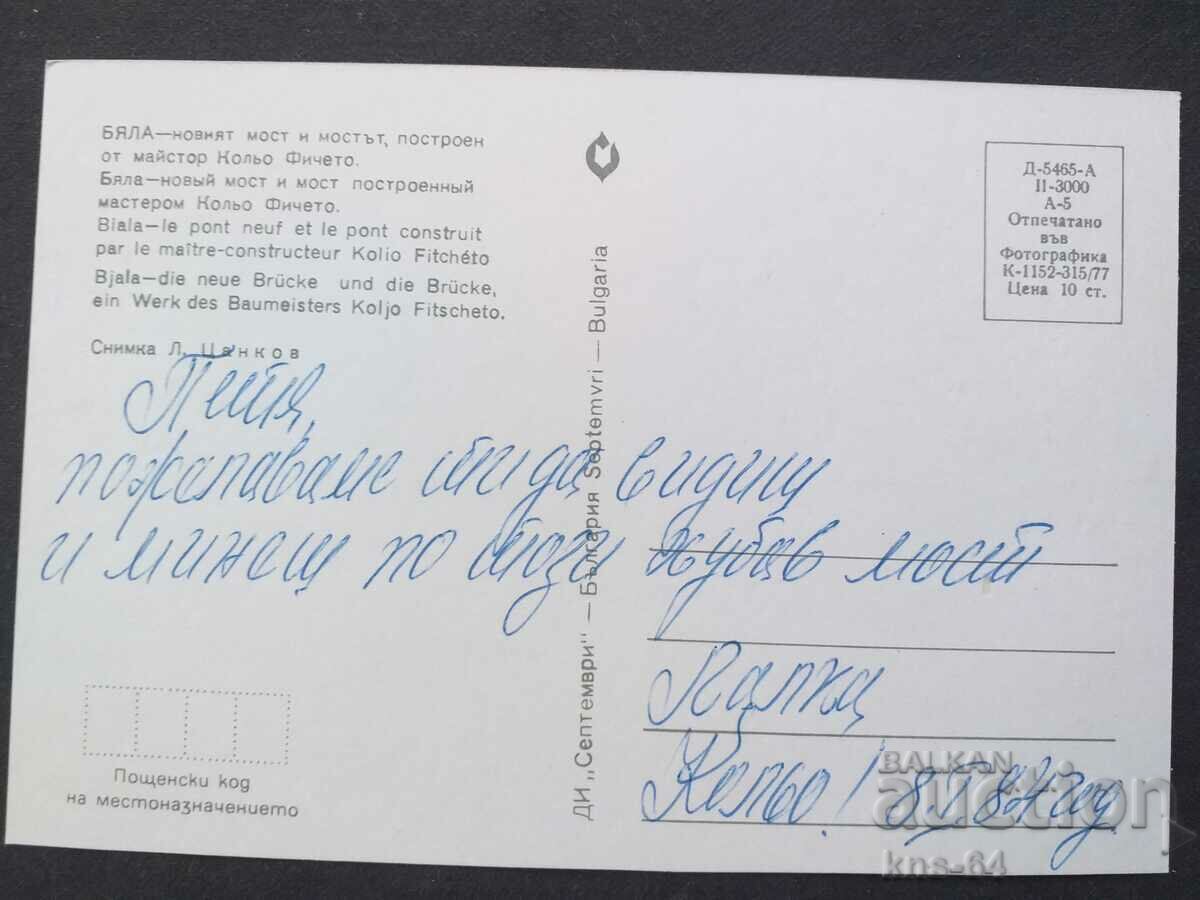 БЯЛА—новият мост и мостът, построен
от майстор Кольо Фичето.
Бяла—новый мост и мост построенный
мастером Кольо Фичето.
Biala—le pont neuf et le pont construit
par le maître-constructeur Kolio Fitchéto
Bjala—die neue Brücke und die Brücke,
ein Werk des Baumeisters Koljo Fitscheto.
Снимка Л. Цанков
Петя,
пожелавам ти да видиш
и минеш по този хубав мост
Кольо!
Пощенски код
на местоназначението
ДИ „Септември" — България Septemvri — Bulgaria
Д-5465-А
II-3000
А-5
Отпечатано
във
Фотографика
К-1152-315/77
Цена 10 ст.
BALKAN
auction
kns-64